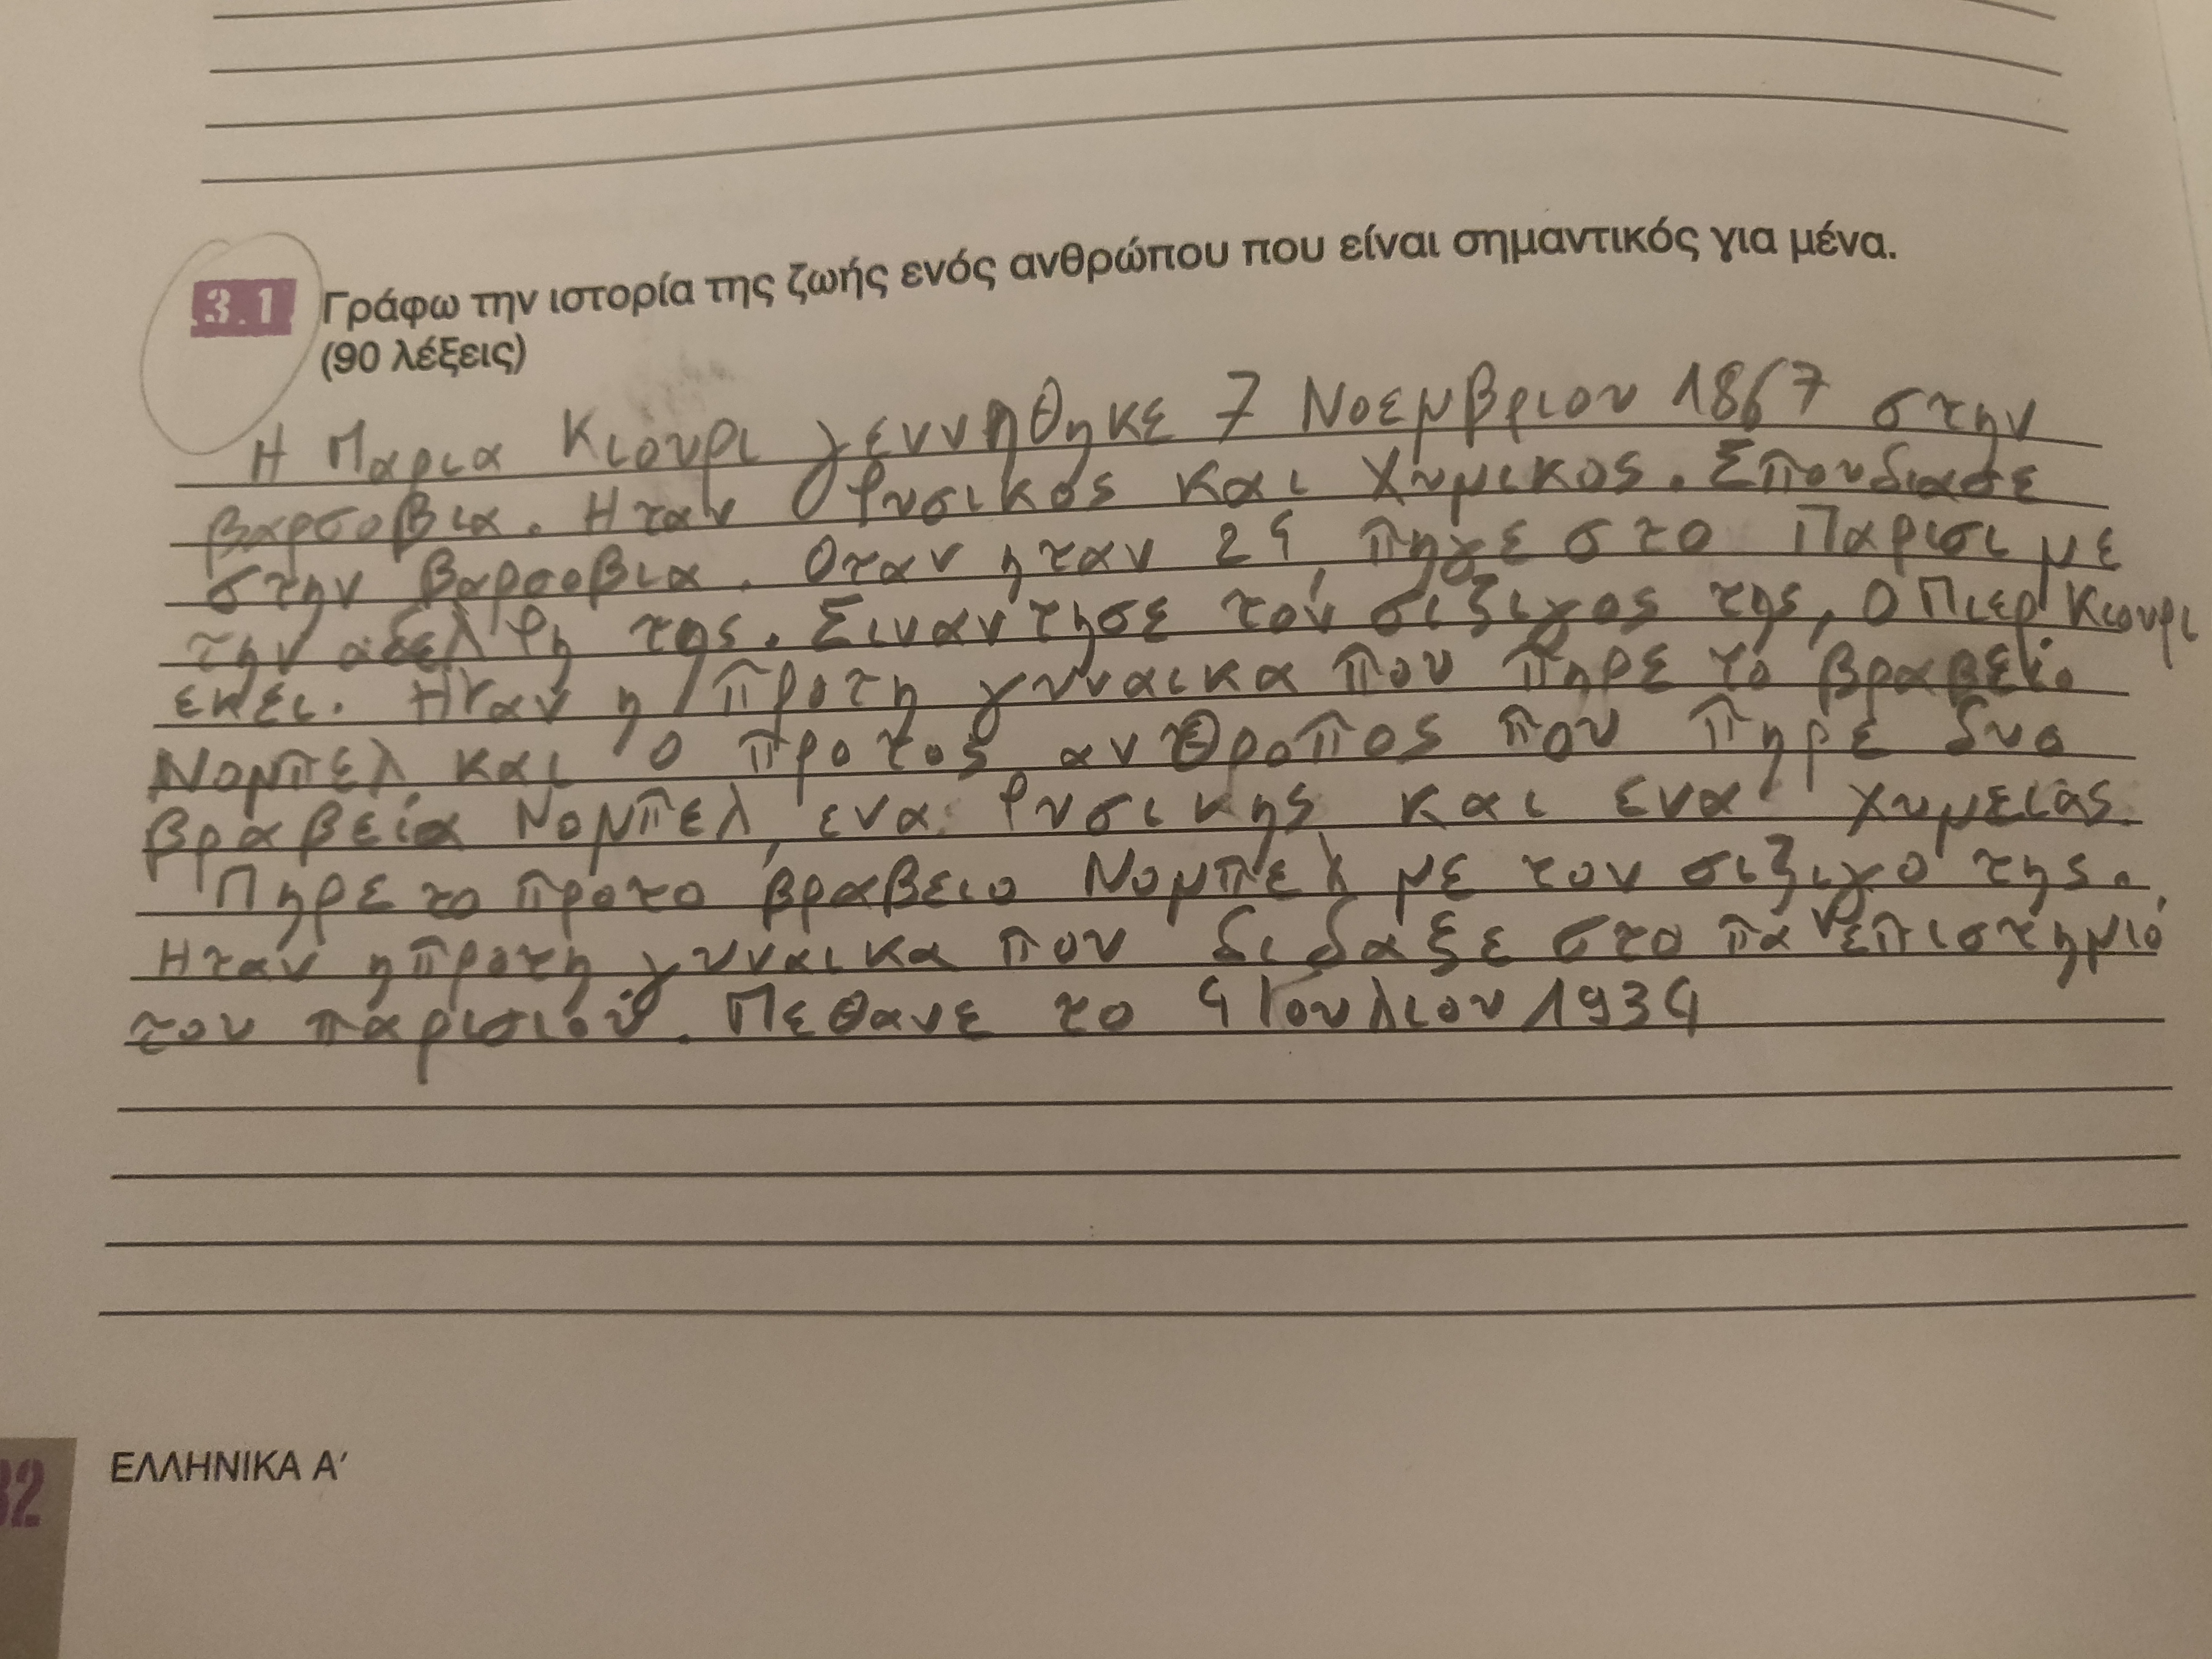 3.1 Γράφω την ιστορία της ζωής ενός ανθρώπου που είναι σημαντικός για μένα.
(90 λέξεις)
Η Μαρια Κιουρι γεννηθηκε 7 Νοεμβριου 1867 στην
βαρσοβια. Ηταν φυσικός και χημικος. Σπουδιασε
στην βαρσοβια. Οταν ηταν 24 πηγε στο Παρισι με
την αδελφη της. Συναντησε τον σιζιγος της, ο Πιερ Κιουρι
εκει. Ηταν η προτη γυναικα που πηρε το βραβειο
Νομπελ και ο προτος ανθροπος που πηρε δυο
βραβεια Νομπελ ενα φυσικης και ενα χυμειας.
Πηρε το προτο βραβειο Νομπελ με τον σιζιγο της.
Ηταν η προτη γυναικα που διδαξε στο πανεπιστημιο
του παρισιού. Πεθανε το 4 Ιουλιου 1934
32
ΕΛΛΗΝΙΚΑ Α΄